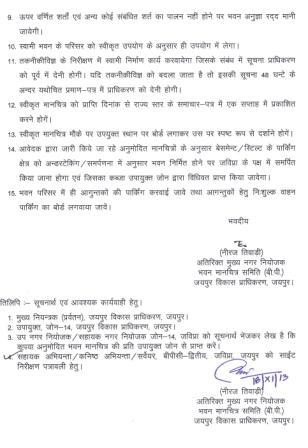 9. ऊपर वर्णित शर्तों एवं अन्य कोई संबंधित शर्त का पालन नहीं होने पर भवन अनुज्ञा रद्द मानी
जायेगी।
10. स्वामी भवन के परिसर को स्वीकृत उपयोग के अनुसार ही उपयोग में लेगा।
11. तकनीकीविज्ञ के निरीक्षण में स्वामी निर्माण कार्य करवायेगा जिसके संबंध में सूचना प्राधिकरण
को पूर्व में देनी होगी। यदि तकनीकीविज्ञ को बदला जाता है तो इसकी सूचना 48 घन्टे के
अन्दर यथोचित प्रमाण–पत्र में प्राधिकरण को देनी होगी।
12. स्वीकृत मानचित्र को प्राप्ति दिनांक से राज्य स्तर के समाचार–पत्र में एक सप्ताह में प्रकाशित
करने होगें।
13. स्वीकृत मानचित्र मौके पर उपयुक्त स्थान पर बोर्ड लगाकर उस पर स्पष्ट रूप से दर्शाने होगें।
14. आवेदक द्वारा जारी किये जा रहे अनुमोदित मानचित्रों के अनुसार बेसमेन्ट/स्टिल्ट के पार्किंग
क्षेत्र को अन्डरटेकिंग/समर्पणनामा में अनुसार भवन निर्मित होने पर जविप्रा के पक्ष में समर्पित
किया जाना होगा एवं जिसका कब्जा उपायुक्त जोन द्वारा विधिवत प्राप्त किया जावेगा।
15. भवन परिसर में ही आगुन्तकों की पार्किंग करवाई जावे तथा आगन्तुकों हेतु निःशुल्क वाहन
पार्किंग का बोर्ड लगवाया जावे।
भवदीय
(नीरज तिवाड़ी)
अतिरिक्त मुख्य नगर नियोजक
भवन मानचित्र समिति (बी.पी.)
जयपुर विकास प्राधिकरण, जयपुर।
तिलिपि :– सूचनार्थ एवं आवश्यक कार्यवाही हेतु।
1. मुख्य नियन्त्रक (प्रर्वतन), जयपुर विकास प्राधिकरण, जयपुर।
2. उपायुक्त, जोन–14, जयपुर विकास प्राधिकरण, जयपुर।
3. उप नगर नियोजक/सहायक नगर नियोजक जोन–14, जविप्रा को सूचनार्थ भेजकर लेख है कि
कृपया अनुमोदित भवन मानचित्र की प्रति उपायुक्त जोन से प्राप्त करें।
4. सहायक अभियन्ता/कनिष्ठ अभियन्ता/सर्वेयर, बीपीसी–द्वितीय, जविप्रा, जयपुर को साईट
निरीक्षण पत्रावली हेतु।
18/XI/13
(नीरज तिवाड़ी)
अतिरिक्त मुख्य नगर नियोजक
भवन मानचित्र समिति (बी.पी.)
जयपुर विकास प्राधिकरण, जयपुर।